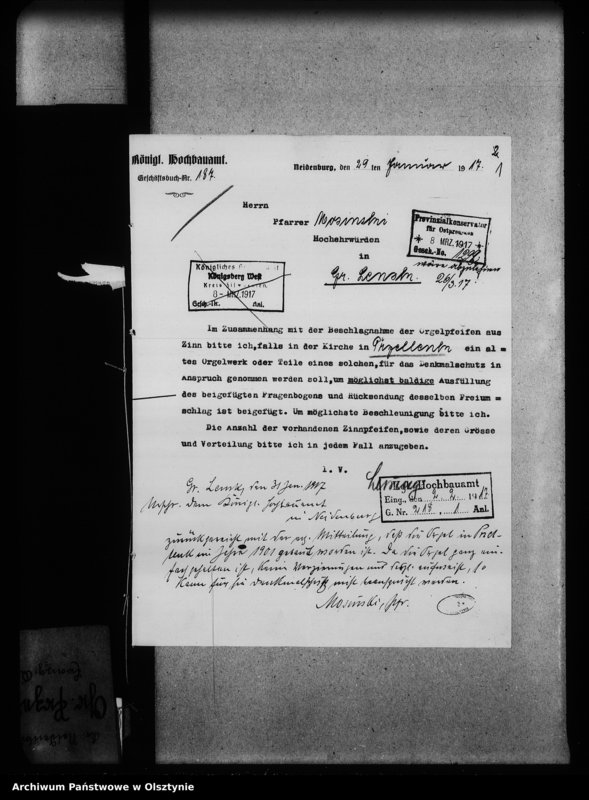 Königl. Hochbauamt.
Geschäftsbuch-Nr. 187.
Neidenburg, den 29 ten Januar 1917.
2
1
Herrn
Pfarrer Mosinski
Hochehrwürden
in
Gr. Lensk.
Provinzialkonservator
für Ostpreussen
8 MRZ. 1917
Gesch.-No.
26/3.17
Königliches
Königsberg West
Kreis
8- MRZ. 1917
Gesch. Nr. Anl.
Im Zusammenhang mit der Beschlagnahme der Orgelpfeifen aus
Zinn bitte ich, falls in der Kirche in ein al=
tes Orgelwerk oder Teile eines solchen, für das Denkmalschutz in
Anspruch genommen werden soll, um möglichst baldige Ausfüllung
des beigefügten Fragenbogens und Rücksendung desselben Freium=
schlag ist beigefügt. Um möglichste Beschleunigung bitte ich.
Die Anzahl der vorhandenen Zinnpfeifen, sowie deren Grösse
und Verteilung bitte ich in jedem Fall anzugeben.
i. V.
Hochbauamt
Eing., den 2. 2. 1917
G. Nr. 219. 1 Anl.
Gr. Lensk, den 31 Jan. 1917
Urschr. dem Königl. Hochbauamt
in Neidenburg
zurückgereicht mit der erg. Mitteilung, daß die Orgel in
im Jahre 1901 gebaut worden ist. Da die Orgel ganz ein-
fach gehalten ist, keine Verzierungen und aufweist, so
kann für sie Denkmalschutz nicht beansprucht werden.
Mosinski, Pfr.
Archiwum Państwowe w Olsztynie